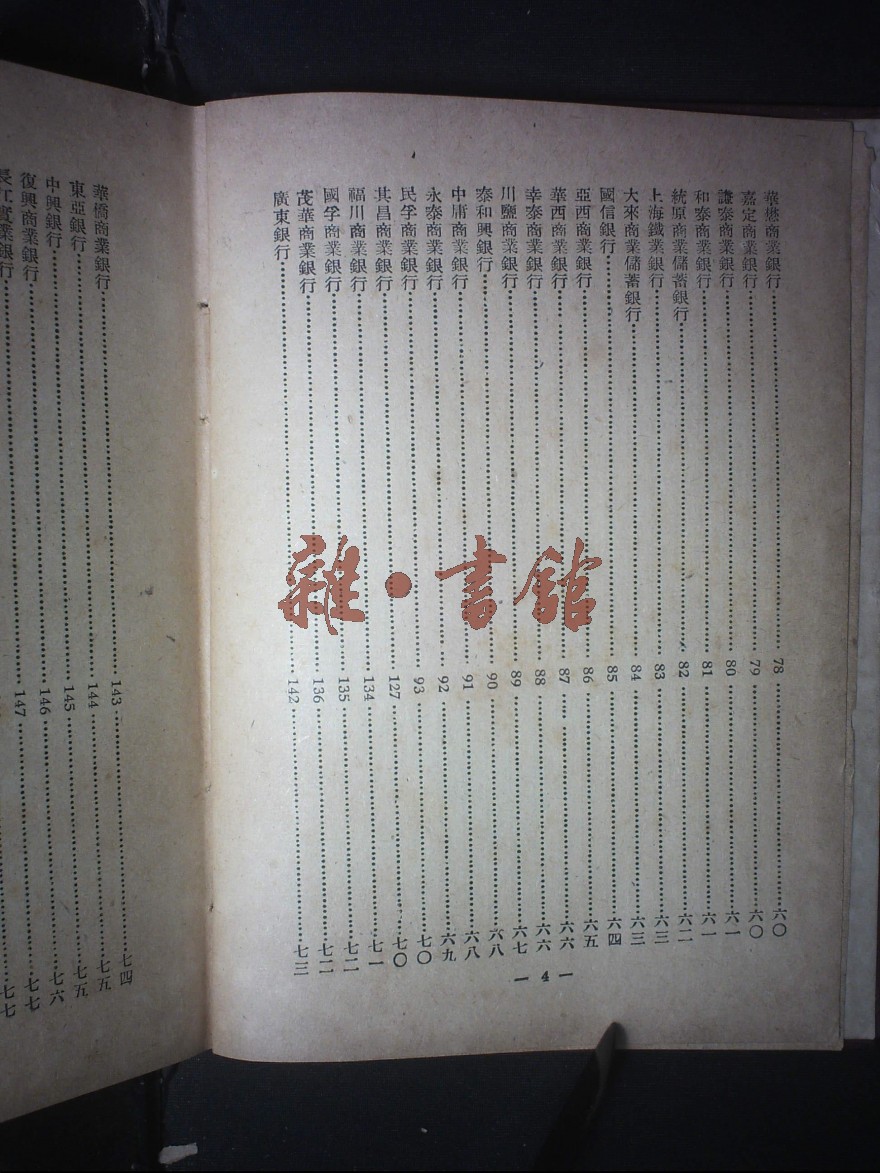 華懋商業銀行……78……六〇
嘉定商業銀行……79……六〇
謙泰商業銀行……80……六一
和泰商業銀行……81……六一
統原商業儲蓄銀行……82……六二
上海鐵業銀行……83……六三
大來商業儲蓄銀行……84……六三
國信銀行……85……六四
亞西商業銀行……86……六五
華西商業銀行……87……六六
幸泰商業銀行……88……六六
川鹽商業銀行……89……六七
泰和興銀行……90……六八
中庸商業銀行……91……六八
永泰商業銀行……92……六九
民孚商業銀行……93……七〇
其昌商業銀行……127……七〇
福川商業銀行……134……七一
國孚商業銀行……135……七二
茂華商業銀行……136……七二
廣東銀行……142……七三
— 4 —
華僑商業銀行……143……七四
東亞銀行……144……七五
中興銀行……145……七五
復興商業銀行……146……七六
長江實業銀行……147……七七
七七
雜·書館